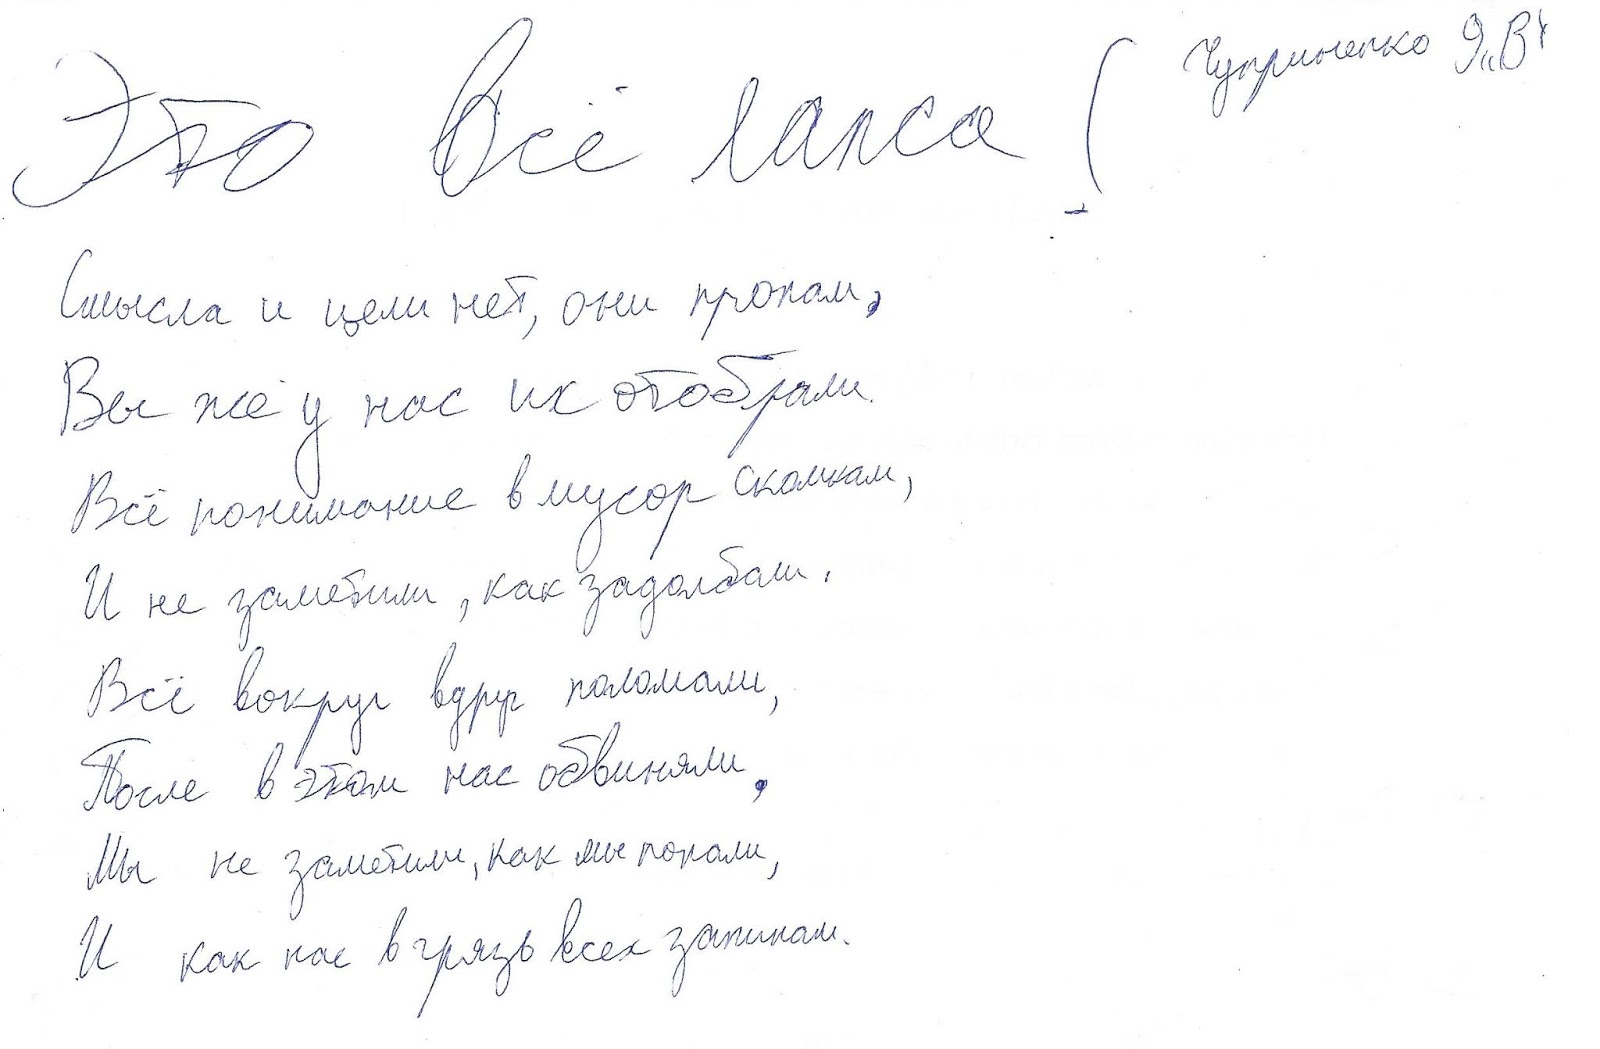 Это всё лапса!
Чуприненко 9 „В"
Смысла и цели нет, они пропали,
Вы же у нас их отобрали.
Всё понимание в мусор скомкали,
И не заметили, как задолбали.
Всё вокруг вдруг поломали,
После в этом нас обвиняли,
Мы не заметили, как мы попали,
И как нас в грязь всех запинали.